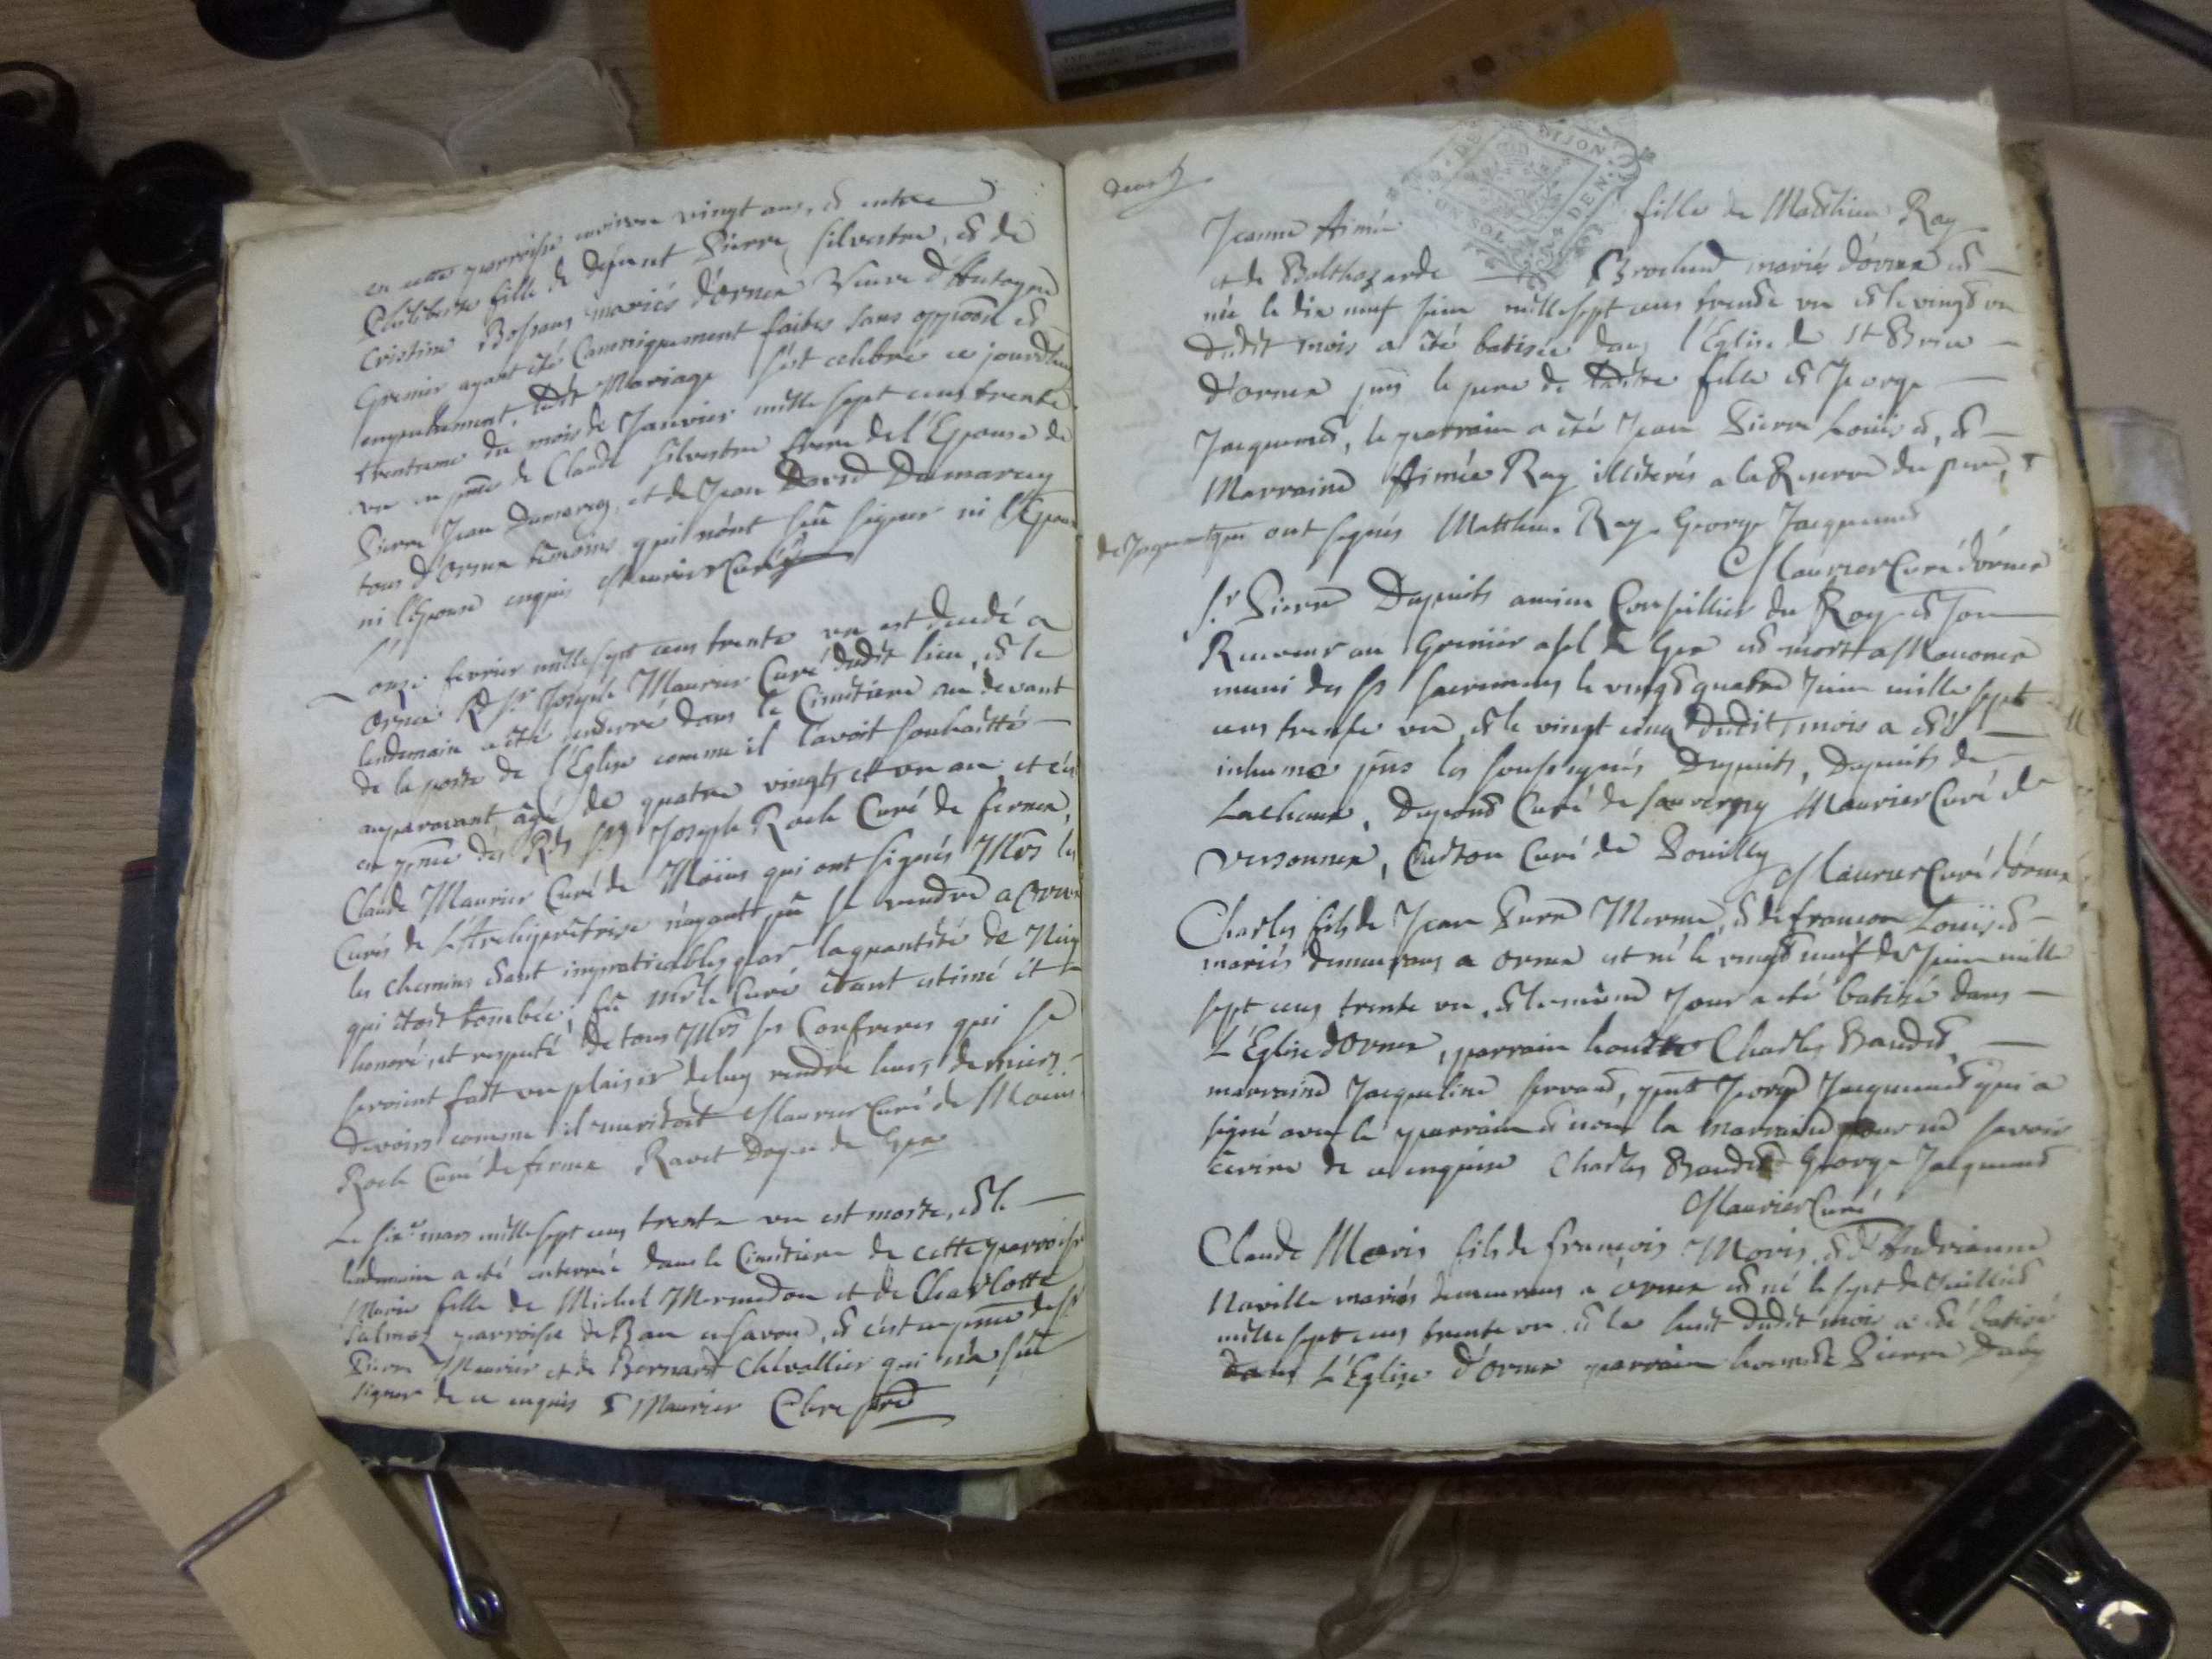 en cette parroisse environ vingt ans, et entre
Philiberte fille de defunt Pierre Silvestre, et de
Cristine Bossans mariés d'Ornex Veuve d'Antoyne
Grenier ayant été Canoniquement faites sans opposõn et
empechement, ledit Mariage s'est celebré ce jourdhuy
trentieme du mois de Janvier mille sept cens trente
un en pñce de Claude Silvestre frere de l'Epouse de
Pierre Jean Dumarey, et de Jean David Dumarey
tous d'Ornex témoins qui n'ont sçu signer ni l'Epoux
ni l'Epouse enquis Maurier Curé
L'onze fevrier mille sept cens trente un est decedé a
Ornex Rd Sr Joseph Maurier Curé dudit lieu, et le
lendemain a été enterré dans le Cimetiere au devant
de la porte de l'Eglise comme il l'avoit souhaitté
auparavant âgé de quatre vingts et un an, et c'est
en pñce des Rds Srs Joseph Roch Curé de fernex,
Claude Maurier Curé de Moëns qui ont signés Mrs les
Curés de L'Archiprêtrise n'ayant pû se rendre a Ornex
les chemins étant impraticables par la quantité de Neige
qui étoit tombée, fû Mr le Curé étant estimé et
honoré, et respecté de tous Mrs ses Confreres qui se
seroient fait un plaisir de luy rendre leurs derniers
devoirs comme il meritoit Maurier Curé de Moëns
Roch Curé de fernex Ravet Doyen de Gex
Le six mars mille sept cens trente un est morte, et le
lendemain a été enterrée dans le Cimetiere de cette parroisse
Marie fille de Michel Mermedon et de Charlotte
parroisse de en Savoye, et c'est en pñce de Sr
Pierre Maurier et de Bernard Chevallier qui n'a sçu
signer de ce enquis P Maurier
deux
Jeanne Aimée fille de Matthieu Ray
et de Balthazarde Brochud mariés d'Ornex et
née le dix neuf Juin mille sept cens trente un et le vingt un
dudit mois a été batisée dans l'Eglise de St Brice
d'Ornex pñs le pere de ladite fille et George
Jacquemet, le parrain a été Jean Pierre Louis et, et
Marraine Aimée Ray illiterés a la Reserve du pere, et
de Jacquemet qui ont signés Matthieu Ray George Jacquemet
Maurier Curé d'Ornex
Sr Pierre Dupuits ancien Conseillier du Roy et son
Receveur au Grenier a sel de Gex est mort a Maconex
muni des Sts Sacremens le vingt quatre Juin mille sept
cens trente un, et le vingt cinq dudit mois a été
inhumé pñs les soussignés Dupuits, Dupuits de
Lachaux, Dupont Curé de Sauvergny Maurier Curé de
Versonnex, Curton Curé de Pouilly Maurier Curé d'Ornex
Charles fils de Jean Pierre Mermet, et de françon Louis et
mariés demeurans a Ornex est né le vingt neuf de Juin mille
sept cens trente un, et le même Jour a été batisé dans
L'Eglise d'Ornex, parrain honnête Charles Baudet,
marraine Jacqueline Servand, pñt George Jacquemet qui a
signé avec le parrain et non la Marraine pour ne savoir
écrire de ce enquise Charles Baudet George Jacquemet
Maurier Curé
Claude Moris fils de françois Moris, et d'Andrianne
Naville mariés demeurans a Ornex est né le sept de Juilliet
mille sept cens trente un et le huit dudit mois a été batisé
dans L'Eglise d'Ornex parrain honnête Pierre
DE DIJON
UN SOL